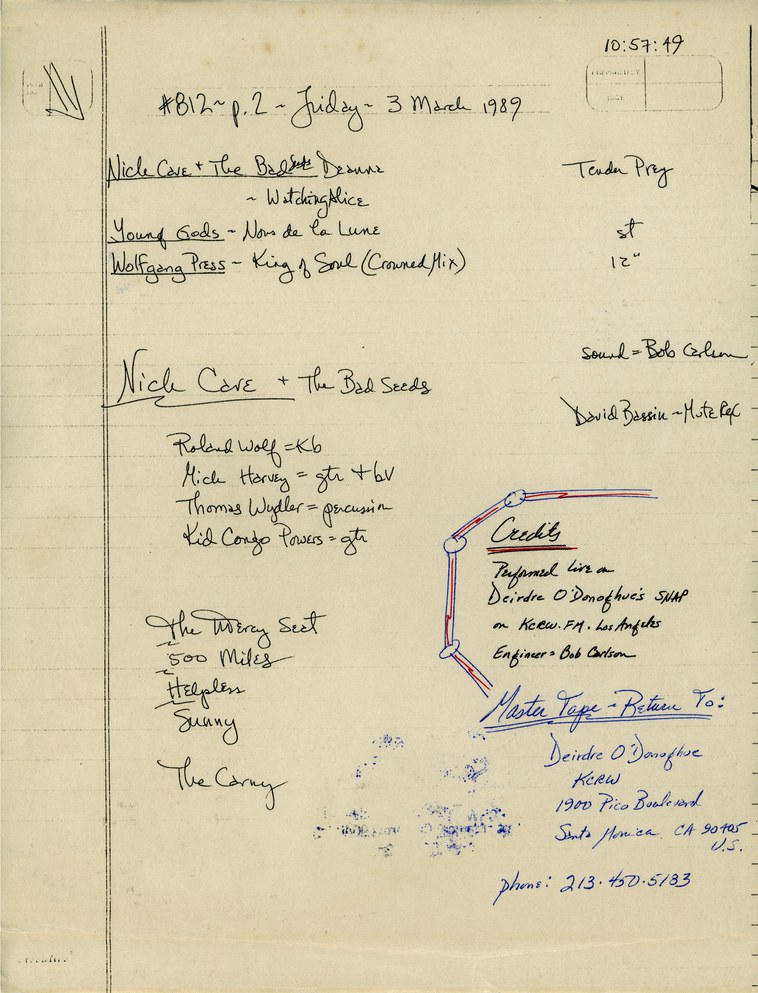 10:57:49
#812 ~ p.2 ~ Friday ~ 3 March 1989
Nick Cave + The Bad Seeds Deanna Tender Prey
~ Watching Alice
Young Gods ~ Nous de la Lune st
Wolfgang Press ~ King of Soul (Crowned Mix) 12"
sound = Bob Carlson
Nick Cave + The Bad Seeds
David Bassin ~ Mute Rep
Roland Wolf = Kb
Mick Harvey = gtr + bv
Thomas Wydler = percussion
Kid Congo Powers = gtr
Credits
Performed Live on
Deirdre O'Donoghue's SNAP
on KCRW. FM. Los Angeles
Engineer = Bob Carlson
The Mercy Seat
500 Miles
Helpless
Sunny
The Carny
Master Tape - Return To:
Deirdre O'Donoghue
KCRW
1900 Pico Boulevard
Santa Monica, CA 90405
U.S.
phone: 213.450.5183